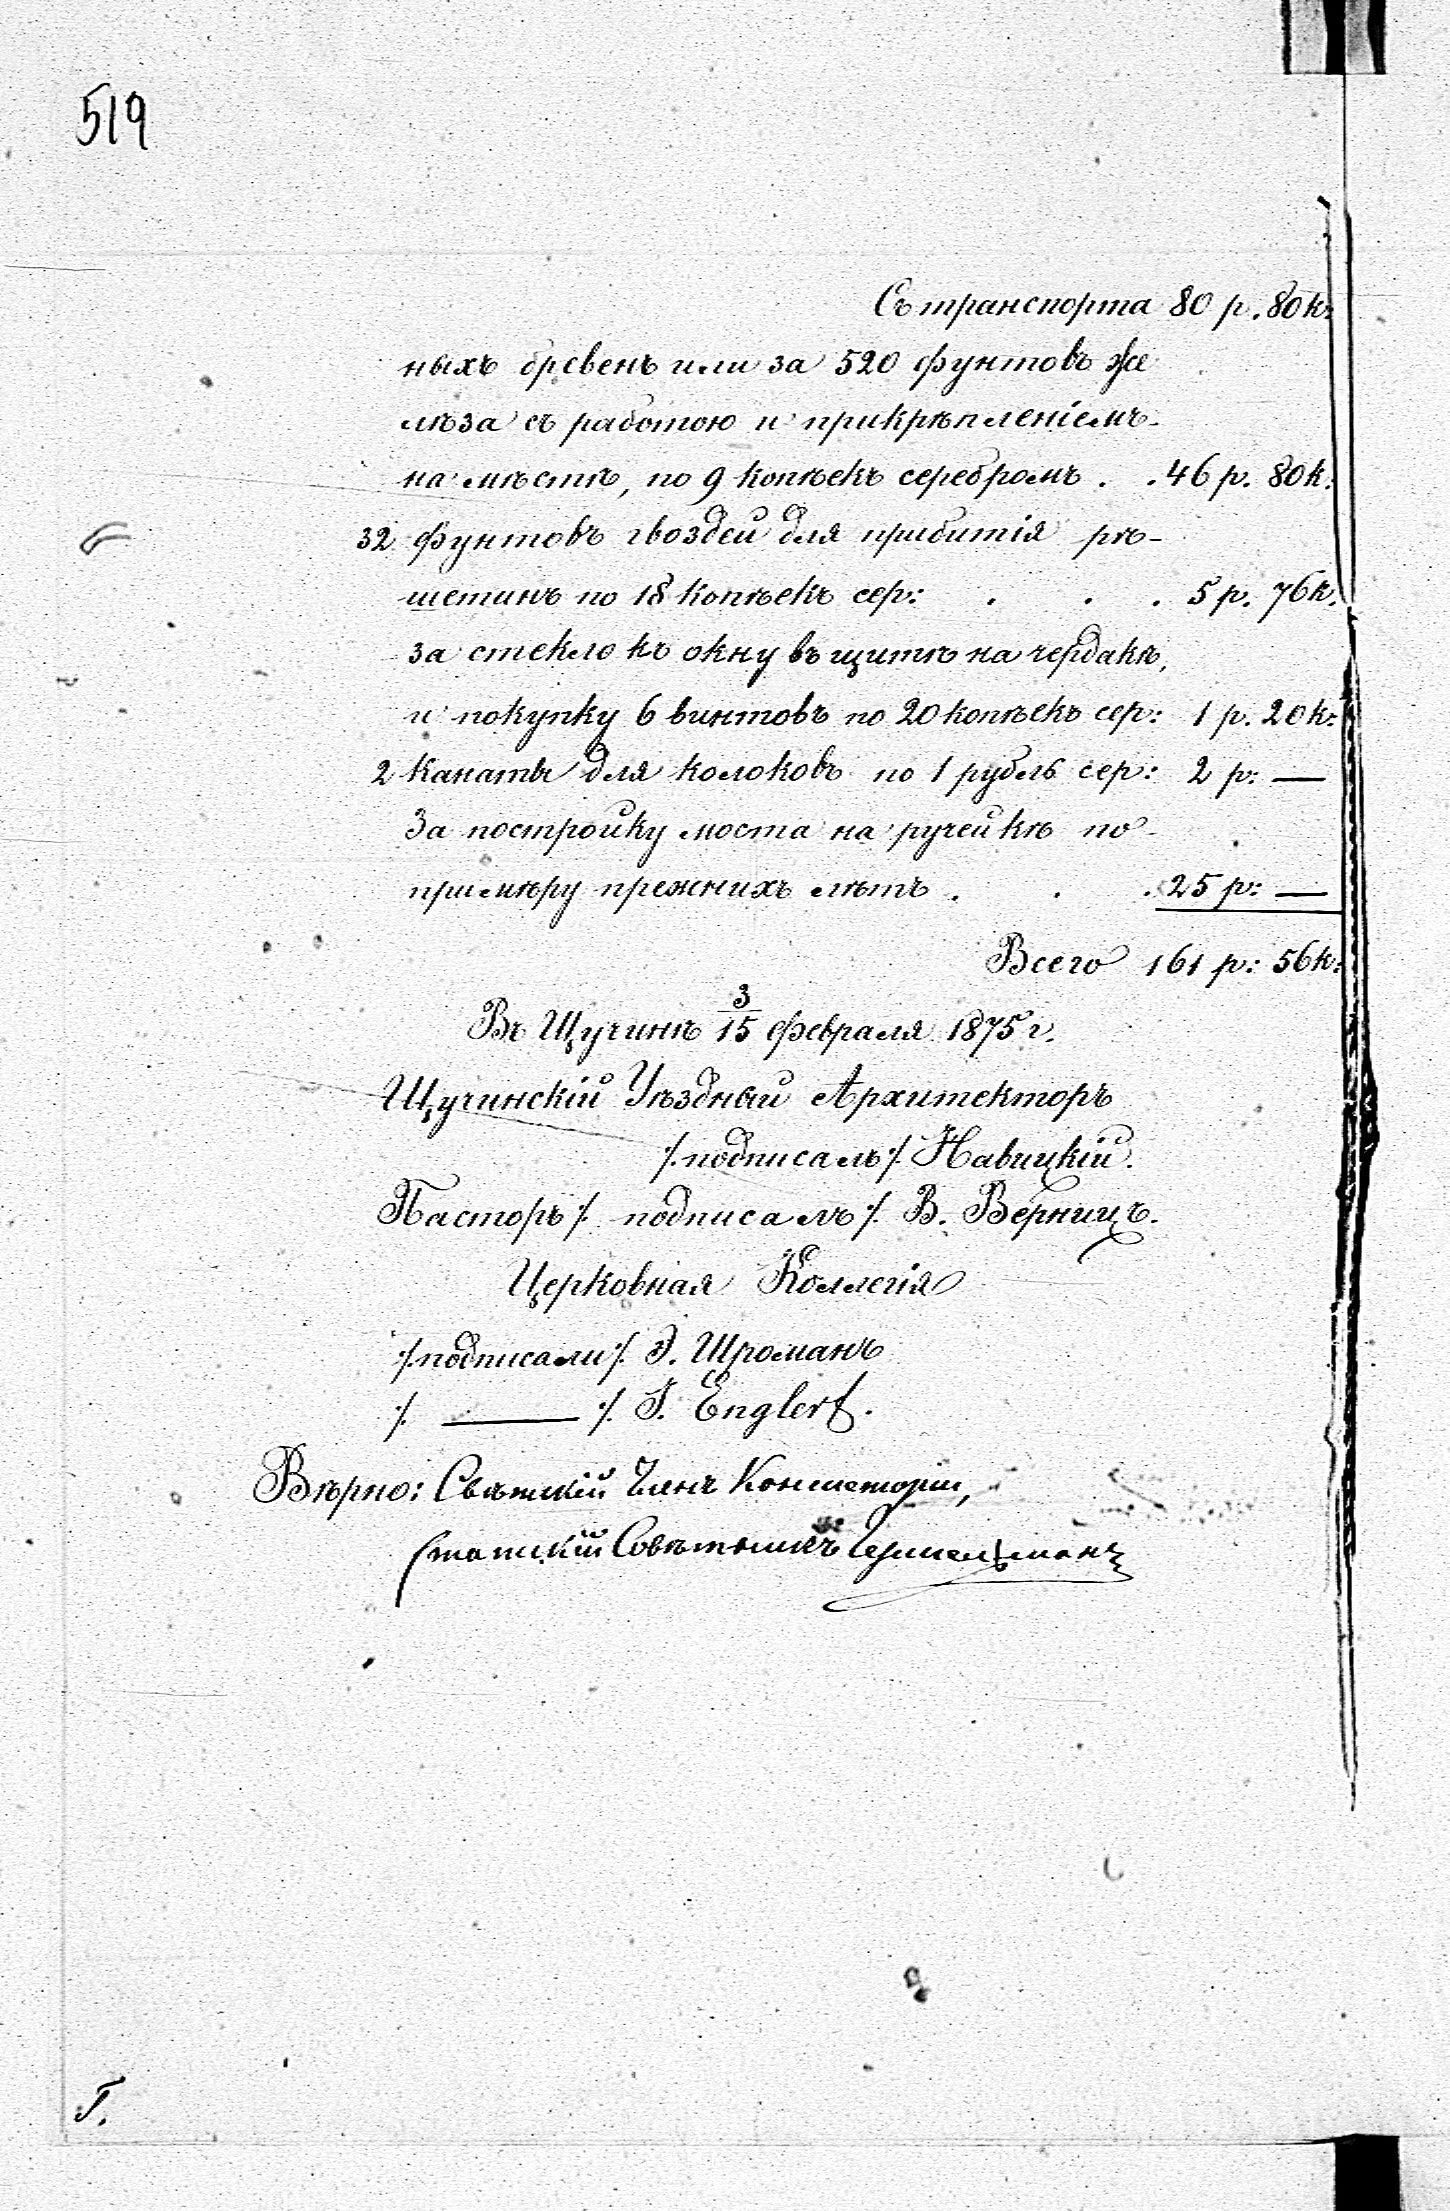 519
Съ транспорта 80 р. 80 к.
ныхъ бревенъ или за 520 фунтовъ же
лѣза съ работою и прикрѣпленіемъ
на мѣстѣ, по 9 копѣекъ серебромъ . . 46 р. 80 к.
32 фунтовъ гвоздей для прибитія рѣ-
шетинъ по 18 копѣекъ сер: . . . 5 р. 76 к.
за стекло къ окну въ щитѣ на чердакѣ,
и покупку 6 винтовъ по 20 копѣекъ сер: 1 р. 20 к:
2 канаты для колоковъ по 1 рубль сер: 2 р: —
За постройку моста на ручейкѣ по
примѣру прежнихъ лѣтъ . . . 25 р: —
Всего 161 р: 56 к:
Въ Щучинѣ 3/15 февраля 1875 г.
Щучинскій Уѣздный Архитекторъ
/. подписалъ /. Навицкій.
Пасторъ /. подписалъ /. В. Верницъ.
Церковная Коллегія
/. подписали /. Э. Шроманъ
/. — /. J. Englert.
Вѣрно: Свѣтскій Членъ Консисторіи,
Статскій Совѣтникъ
Г.